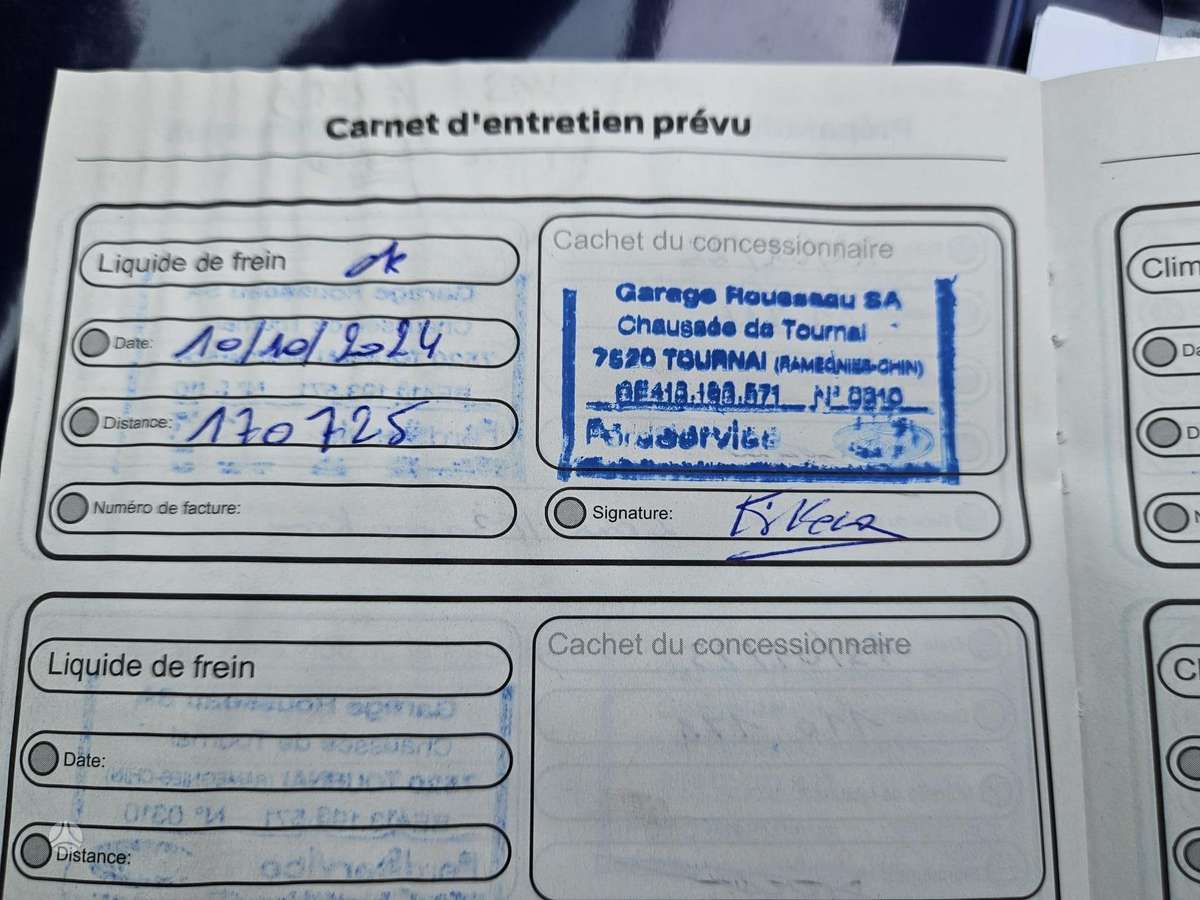 Carnet d'entretien prévu
Liquide de frein ok
Date: 10/10/2024
Distance: 170725
Numéro de facture:
Cachet du concessionnaire
Garage Rousseau SA
Chaussée de Tournai
7520 TOURNAI (RAMEGNIES-CHIN)
BE413.193.571 N° 0310
Fordservice
Signature:
Liquide de frein
Date:
Distance:
Cachet du concessionnaire
Clim
Da
D
N